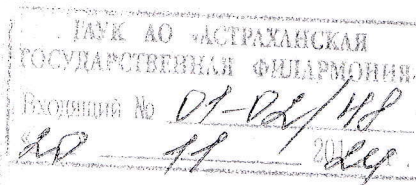 ГАУК АО «АСТРАХАНСКАЯ
ГОСУДАРСТВЕННАЯ ФИЛАРМОНИЯ»
Входящий № 01-02/48
«20 11 201 24г.